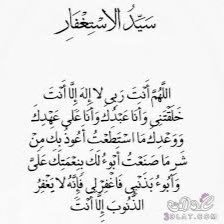 سَيِّدُ الْاسْتِغْفَارِ
اللَّهُمَّ أَنْتَ رَبِّي لا إِلَهَ إِلَّا أَنْتَ
خَلَقْتَنِي وَأَنَا عَبْدُكَ وَأَنَا عَلَى عَهْدِكَ
وَوَعْدِكَ مَا اسْتَطَعْتُ أَعُوذُ بِكَ مِنْ
شَرِّ مَا صَنَعْتُ أَبُوءُ لَكَ بِنِعْمَتِكَ عَلَيَّ
وَأَبُوءُ بِذَنْبِي فَاغْفِرْ لِي فَإِنَّهُ لَا يَغْفِرُ
الذُّنُوبَ إِلَّا أَنْتَ
3dlat.com